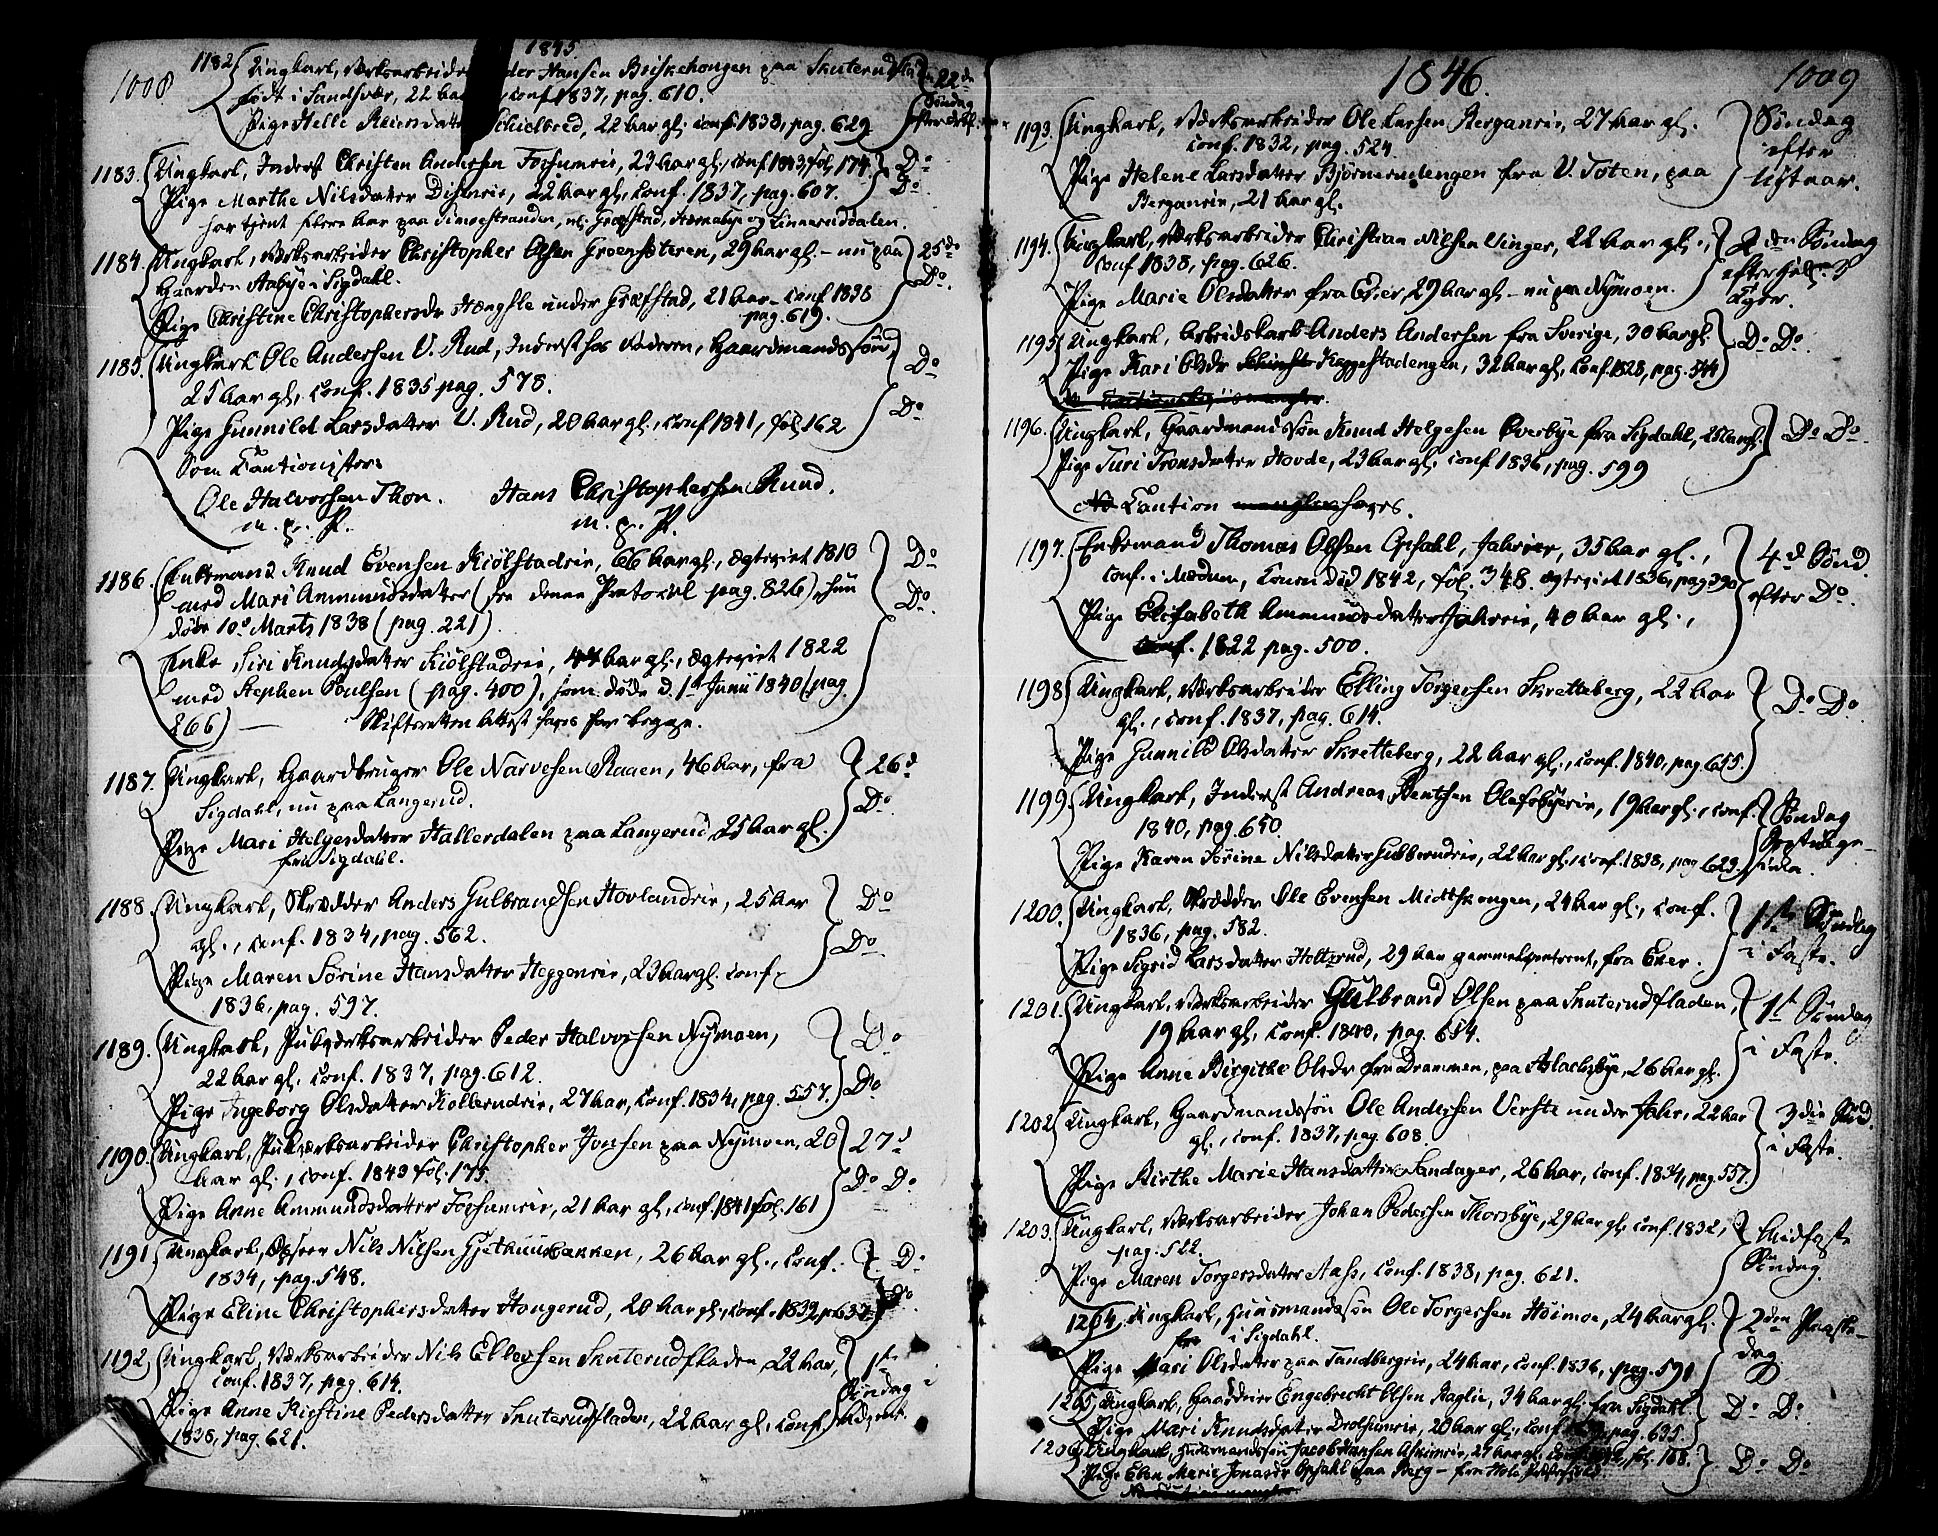 1008
1845
1182 Ungkarl, Værksarbeider Hansen Briskehougen paa Skuterudfla
født i Sandsvær, 22 conf 1837, pag. 610.
Pige Helle Reiersdatter 22 aar gl. conf. 1838, pag. 629
22de
Søndag
1183. Ungkarl, Inderst Christen Andersen Fossumeie, 23 aar gl., conf. 1843, fol. 174.
Pige Marthe Nilsdatter 22 aar gl., Conf. 1837, pag. 607.
Do
Do
har tjent flere Aar paa Græfstad, og
1184. Ungkarl, Værksarbeider Christopher Olsen Groensæteren, 29 aar gl. – nu paa
Gaarden Aabye i Sigdahl.
Pige Christine Christophersdr under Græfstad, 21 aar – conf 1838
pag. 619.
25de
Do.
1185. Ungkarl Ole Andersen V. Rud, Inderst hos Faderen, Gaardmandssøn,
25 aar gl., conf. 1835 pag. 578.
Pige Gunnild Larsdatter V. Rud, 20 aar gl., conf 1841, fol 162
Do
Do
Som Cautionister:
Ole Halvorsen Thon. Hans Christophersen Ruud.
m. p. P. m. p. P.
1186. Enkemand Knud Evensen Kiölstadeie, 66 aar gl., ægteviet 1810
med Mari Ammundsdatter (see denne Protocol pag. 826), hun
døde 10de Marts 1838 (pag. 221).
Enke Siri Knudsdatter Kiölstadeie, 44 aar gl., Ægteviet 1822
med Stephen Poulsen (pag. 400), som døde d. 1ste Junii 1840 (pag
266) – Skifteretten Attest haves for begge.
Do
Do.
1187. Ungkarl, Gaardbruger Ole Narvesen Raaen, 46 aar, fra
Sigdahl, nu paa Langerud.
Pige Mari Helgesdatter Hallerdalen paa Langerud, 25 aar gl.
fra Sigdahl.
26d
Do
1188. Ungkarl, Skrædder Anders Gulbrandsen Hovlandeie, 25 aar
gl., conf. 1834, pag. 562.
Pige Maren Sørine Hansdatter Heggeneie, 23 aar gl. conf.
1836, pag. 597.
Do
Do
1189. Ungkarl, Pukværksarbeider Peder Halvorsen Nymoen,
22 aar gl. conf. 1837, pag. 612.
Pige Ingeborg Olsdatter Kollerudeie, 27 aar, Conf. 1834, pag. 557.
Do
Do
1190. Ungkarl, Pukværksarbeider Christopher Jonsen paa Nymoen, 20
aar gl., conf. 1843 fol. 175.
Pige Anne Ammundsdatter Fossumeie, 21 aar gl, conf. 1841 fol. 161
27d
Do Do
1191 Ungkarl, Opseer Nils Nilsen Gjethuusbakken, 26 aar gl., conf.
1834, pag. 548.
Pige Eline Christophersdatter Hougerud, 20 aar gl., conf. 1839, p. 637
Do
Do.
1192, Ungkarl, Værksarbeider Nils Ellevsen Skuterudfladen 22 aar,
conf. 1837, pag. 614.
Pige Anne Kirstine Pedersdatter Skuterudfladen, 22 aar gl., conf.
1838, pag. 621.
1ste
Søndag i
Advent.
1846.
1009
1193. Ungkarl, Værksarbeider Ole Larsen Berganeie, 27 aar gl.
conf. 1832, pag. 524
Pige Helene Larsdatter Björnerudengen fra V. Toten, paa
Berganeie, 21 aar gl.
Søndag
efter
Nytaar.
1194. Ungkarl, Værksarbeider Christian Nilsen Unger, 22 aar gl.,
conf 1838, pag. 626.
Pige Marie Olsdatter fra Eker, 29 aar gl – nu paa Nymoen.
2den Søndag
efter Hel. 3
Kger.
1195 Ungkarl, Arbeidskarl Anders Andersen fra Sverige, 30 aar gl.
Pige Kari Olsdr Heggestadengen, 32 aar gl, conf. 1828, pag. 544
Do Do.
1196. Ungkarl, Gaardmandssøn Knud Helgesen Overbye fra Sigdahl, 25 aar gl.
Pige Turi Tronsdatter Hovde, 23 aar gl. conf 1836, pag. 599
NB Caution mangler haves.
Do Do
1197. Enkemand Thomas Olsen Opsahl, Jahreie, 35 aar gl.,
conf. i Modum, Konen død 1842, fol. 348. ægteviet 1836, pag 990
Pige Elisabeth Ammundsdatter Jahreie, 40 aar gl.,
conf. 1822 pag. 500.
4d Sønd.
efter Do.
1198 Ungkarl, Værksarbeider Elling Torgersen Skretteberg, 22 aar
gl., conf. 1837, pag. 614.
Pige Gunnild Olsdatter Skretteberg, 22 aar gl., conf. 1840, pag. 655.
Do Do.
1199 Ungkarl, Inderst Andreas Bentsen Olafsbyeeie, 19 aar gl., conf.
1840, pag. 650.
Pige Karen Sørine Nilsdatter Gubberudeie, 22 aar gl., conf. 1838, pag 629.
Søndag
1200. Ungkarl, Skrædder Ole Evensen Midtskougen, 24 aar gl., conf.
1836, pag. 582.
Pige Sigrid Larsdatter Holterud, 29 aar gammel fra Eker.
1ste Søndag
i Faste.
1201. Ungkarl, Værksarbeider Gulbrand Olsen paa Skuterudfladen,
19 aar gl, conf. 1840, pag. 654.
Pige Anne Birgithe Olsdr fra Drammen, paa Aslachsbye, 26 aar gl.
1st Søndag
i Faste.
1202 Ungkarl, Gaardmandssøn Ole Andersen Verste under Jahr, 22 aar
gl., conf. 1837, pag. 608.
Pige Birthe Marie Hansdatter Sandager, 26 aar, conf. 1834, pag. 557.
3die Sønd.
i Faste.
1203. Ungkarl, Værksarbeider Johan Pedersen Thorsbye, 29 aar gl, conf. 1832,
pag. 522.
Pige Maren Torgersdatter Aass, conf. 1838, pag. 621.
Midfaste
Søndag.
1204. Ungkarl, Huusmandssøn Ole Torgersen Höimoe, 24 aar gl.
i Sigdahl.
Pige Mari Olsdatter paa Tandbergeie, 24 aar, conf. 1836, pag. 591
2den Paaske-
dag
1205 Ungkarl, Engebrecht Olsen Haglie, 34 aar gl. fra Sigdahl
Pige Mari Knudsdatter Drolsumeie, 20 aar gl., conf pag. 635.
Do Do.
1206 Ungkarl, Huusmandssøn Jacob Hansen 27 aar gl., fol. 168.
Pige Elen Marie Jonasdr Opsahl paa Berg – fra
Do Do